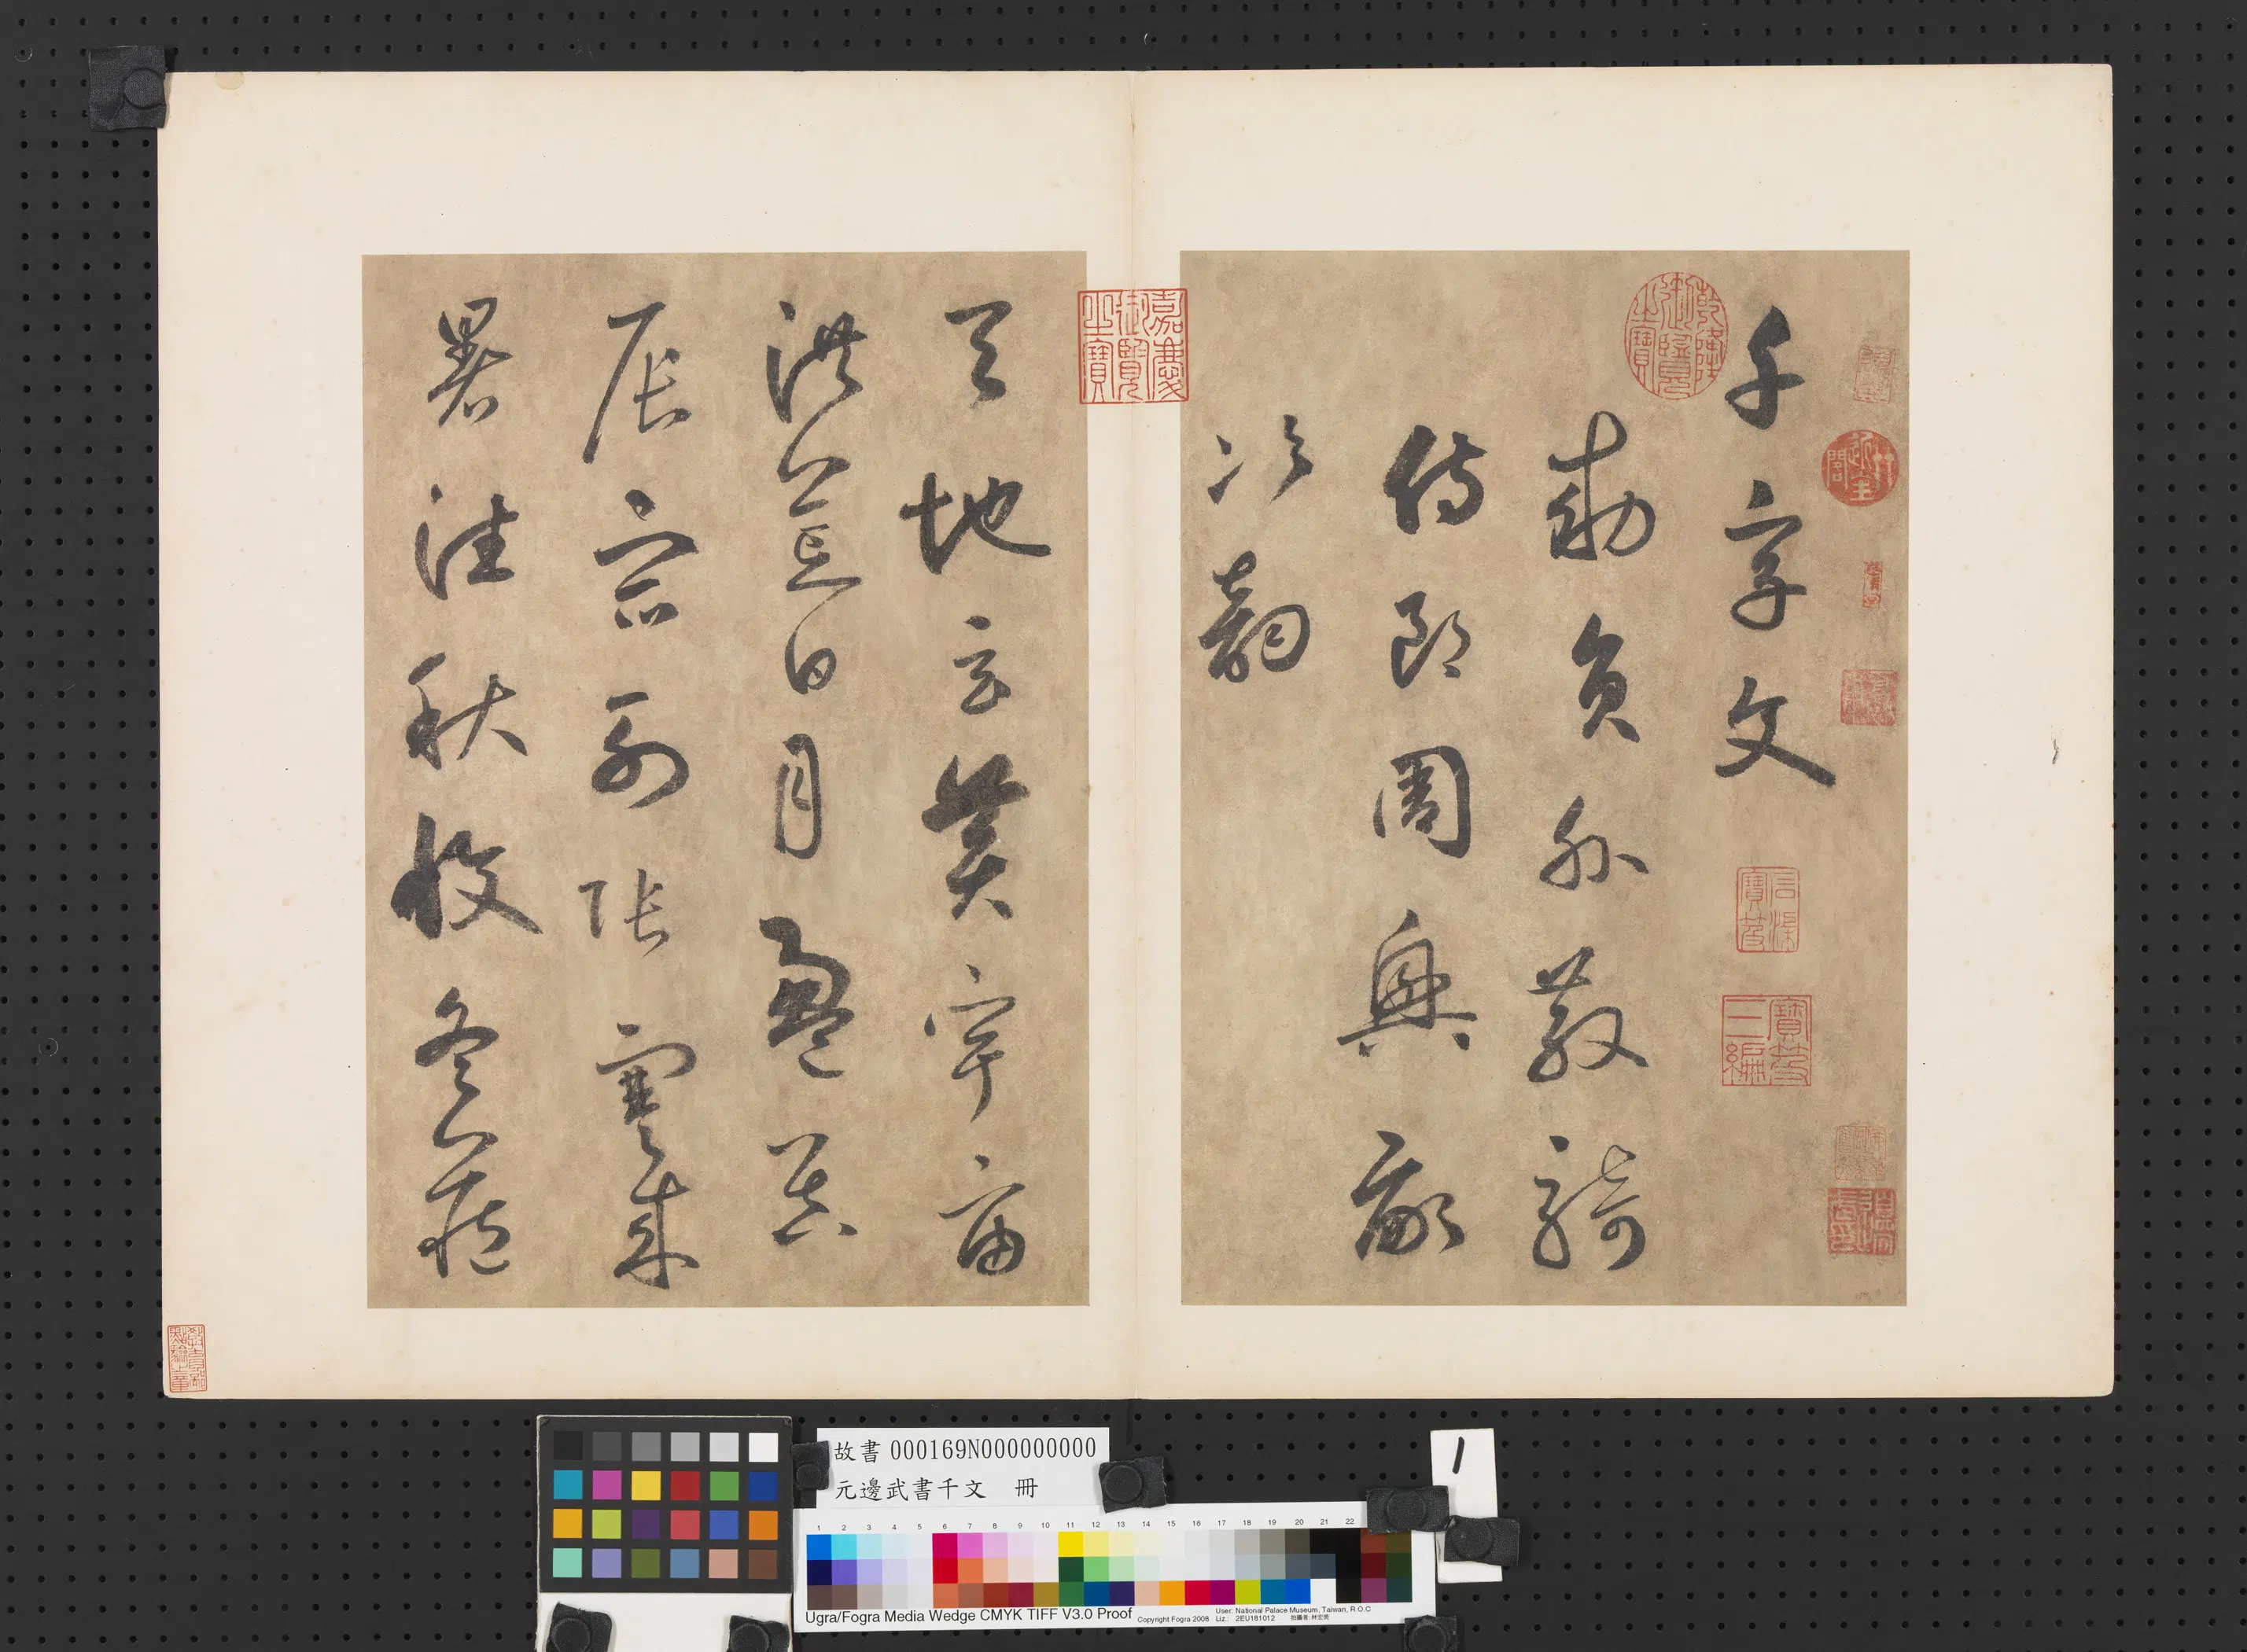 千字文
勅員外散騎
侍郎周興嗣
次韻
天地玄黃宇宙
洪荒日月盈昃
辰宿列張寒來
暑往秋收冬藏
乾隆御覽之寶
嘉慶御覽之寶
石渠寶笈
寶笈三編
故書 000169N000000000
元邊武書千文 冊
1
1 2 3 4 5 6 7 8 9 10 11 12 13 14 15 16 17 18 19 20 21 22
Ugra/Fogra Media Wedge CMYK TIFF V3.0 Proof
Copyright Fogra 2008
User: National Palace Museum, Taiwan, R.O.C
Liz.: 2EU181012